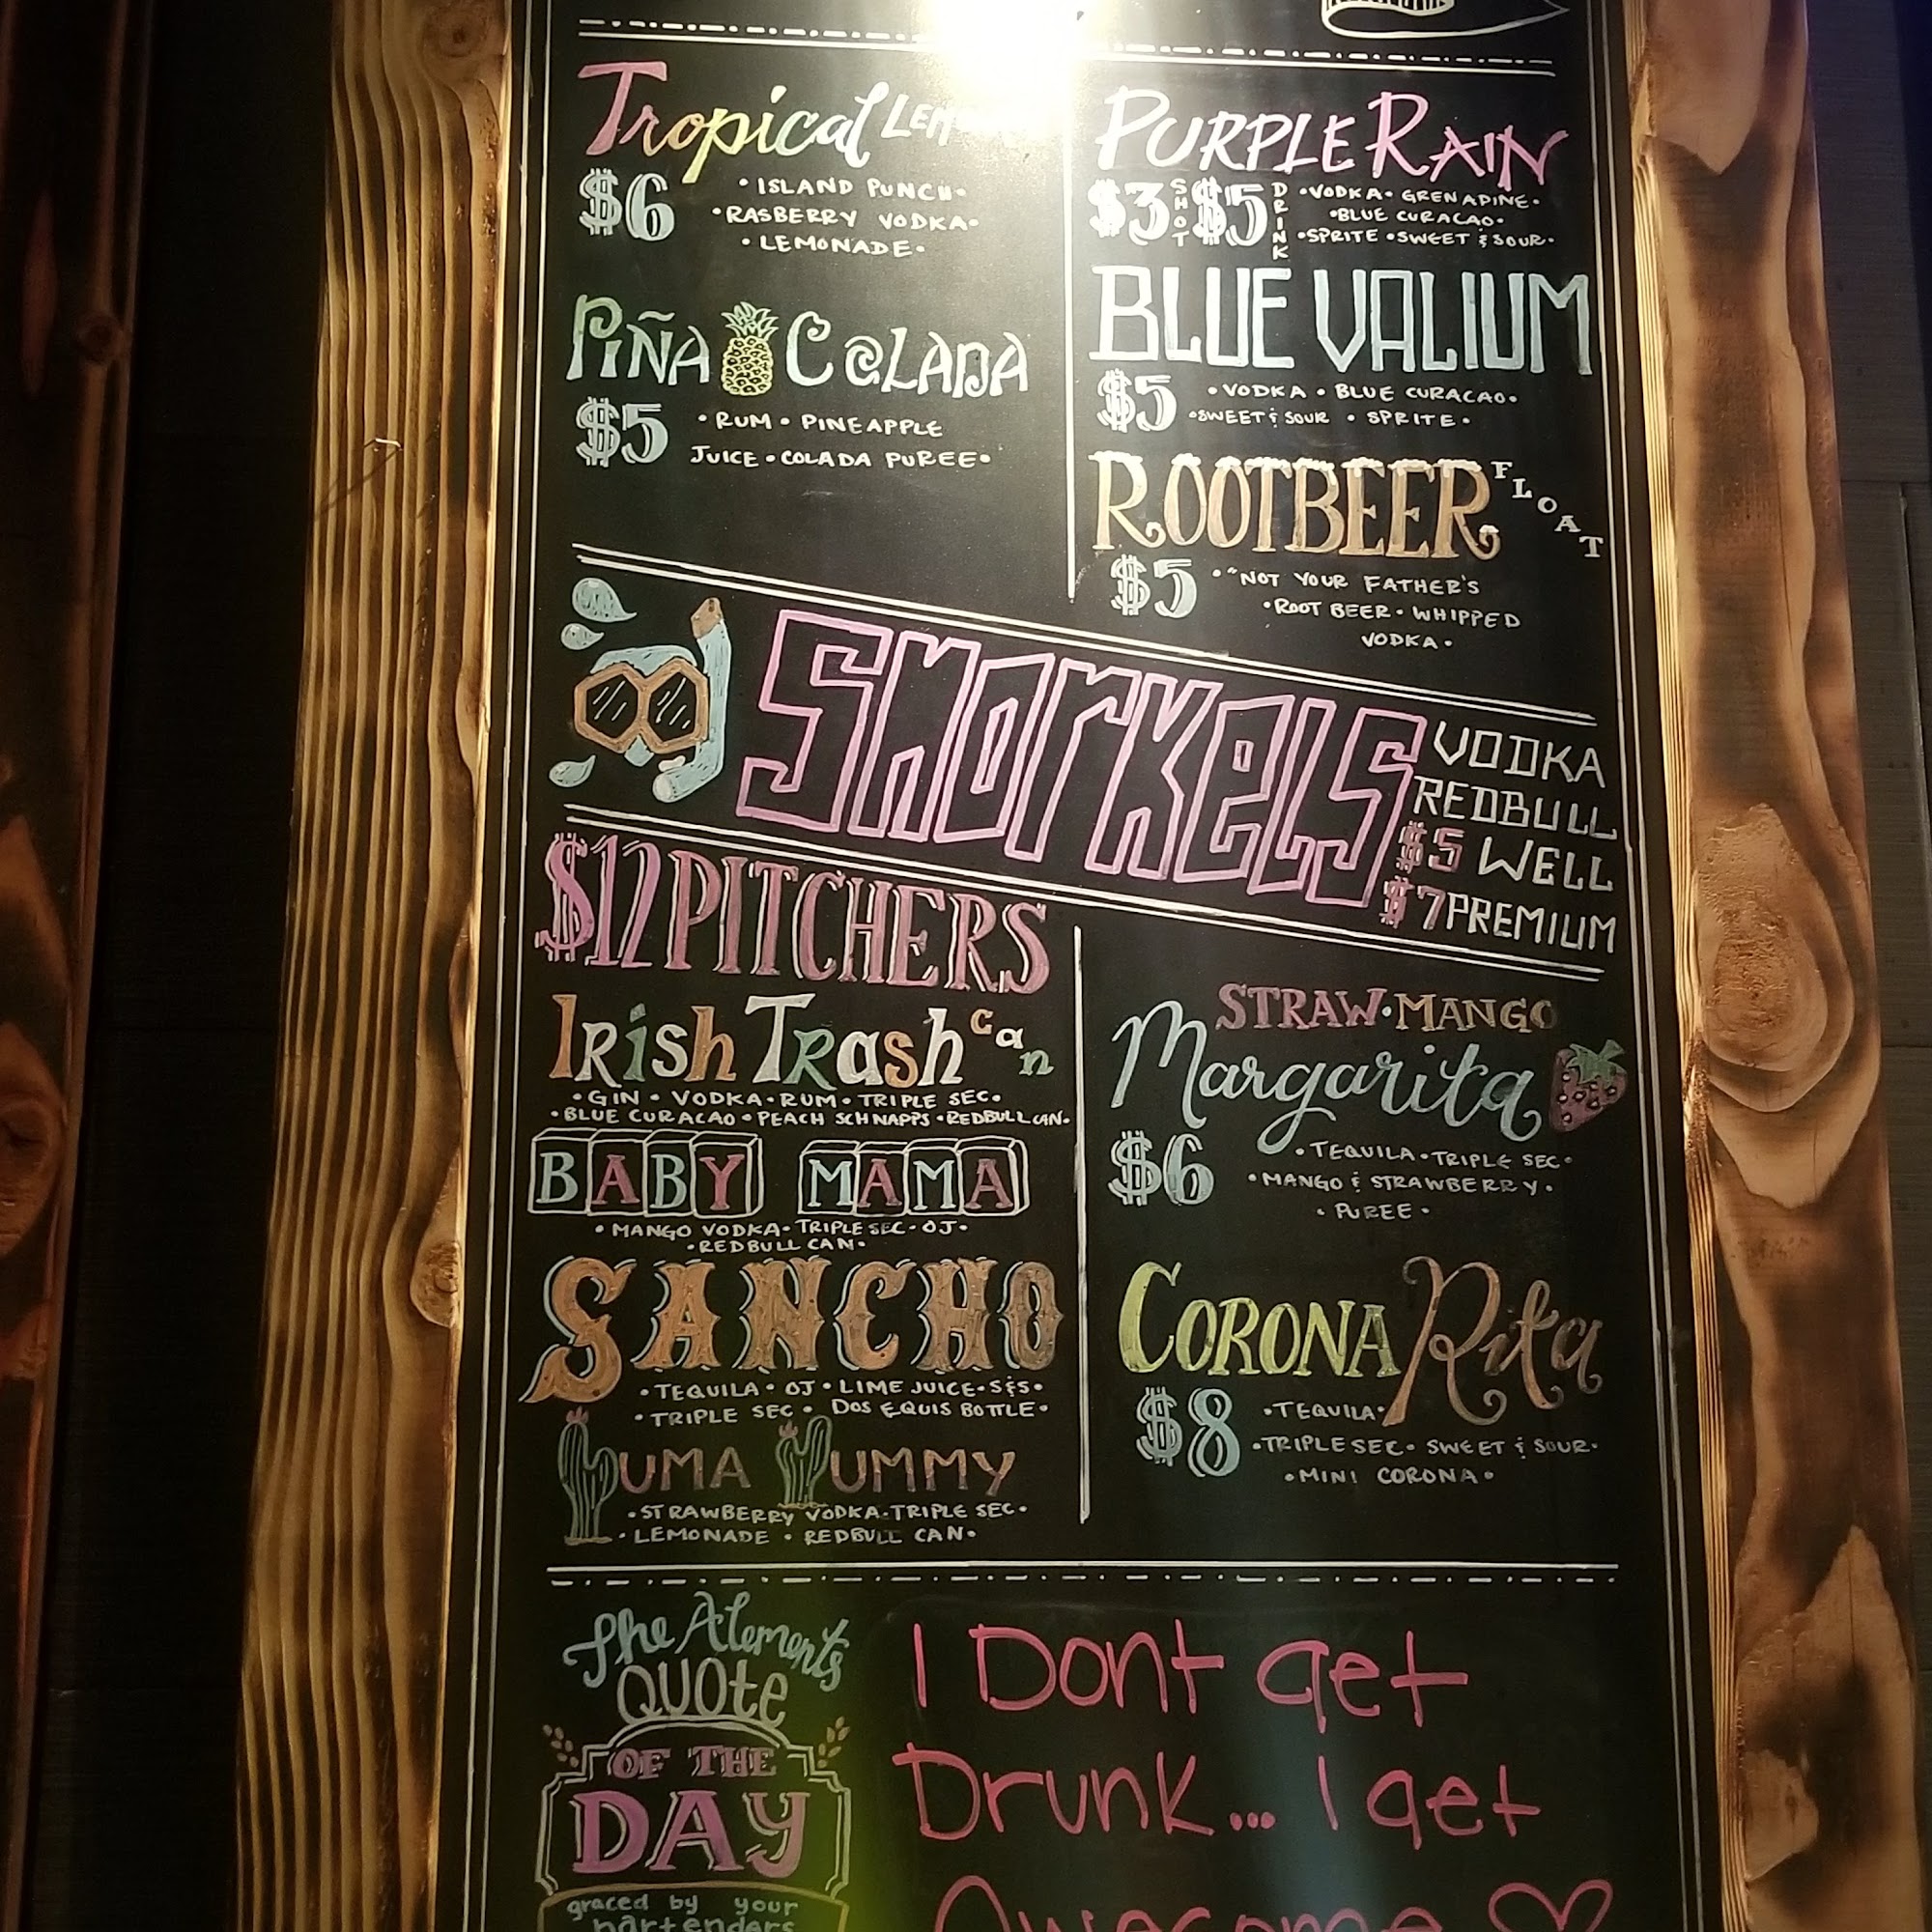 Tropical
$6
• ISLAND PUNCH •
• RASBERRY VODKA •
• LEMONADE •
PIÑA COLADA
$5
• RUM • PINEAPPLE
JUICE • COLADA PUREE •
PURPLE RAIN
$3 SHOT $5 DRINK
• VODKA • GRENADINE •
• BLUE CURACAO •
• SPRITE • SWEET & SOUR •
BLUE VALIUM
$5
• VODKA • BLUE CURACAO •
• SWEET & SOUR • SPRITE •
ROOTBEER FLOAT
$5
• "NOT YOUR FATHER'S
• ROOT BEER • WHIPPED
VODKA •
SNORKELS
VODKA
REDBULL
$5 WELL
$7 PREMIUM
$12 PITCHERS
IRish TRash can
• GIN • VODKA • RUM • TRIPLE SEC •
• BLUE CURACAO • PEACH SCHNAPPS • REDBULL CAN •
BABY MAMA
• MANGO VODKA • TRIPLE SEC • OJ •
• REDBULL CAN •
SANCHO
• TEQUILA • OJ • LIME JUICE • S&S •
• TRIPLE SEC • DOS EQUIS BOTTLE •
YUMA YUMMY
• STRAWBERRY VODKA • TRIPLE SEC •
• LEMONADE • REDBULL CAN •
STRAW • MANGO
Margarita
$6
• TEQUILA • TRIPLE SEC •
• MANGO & STRAWBERRY •
• PUREE •
CORONA Rita
$8
• TEQUILA •
• TRIPLE SEC • SWEET & SOUR •
• MINI CORONA •
The Alements
QUOTE
OF THE
DAY
graced by your
bartenders
I Dont get
Drunk... I get
Awesome